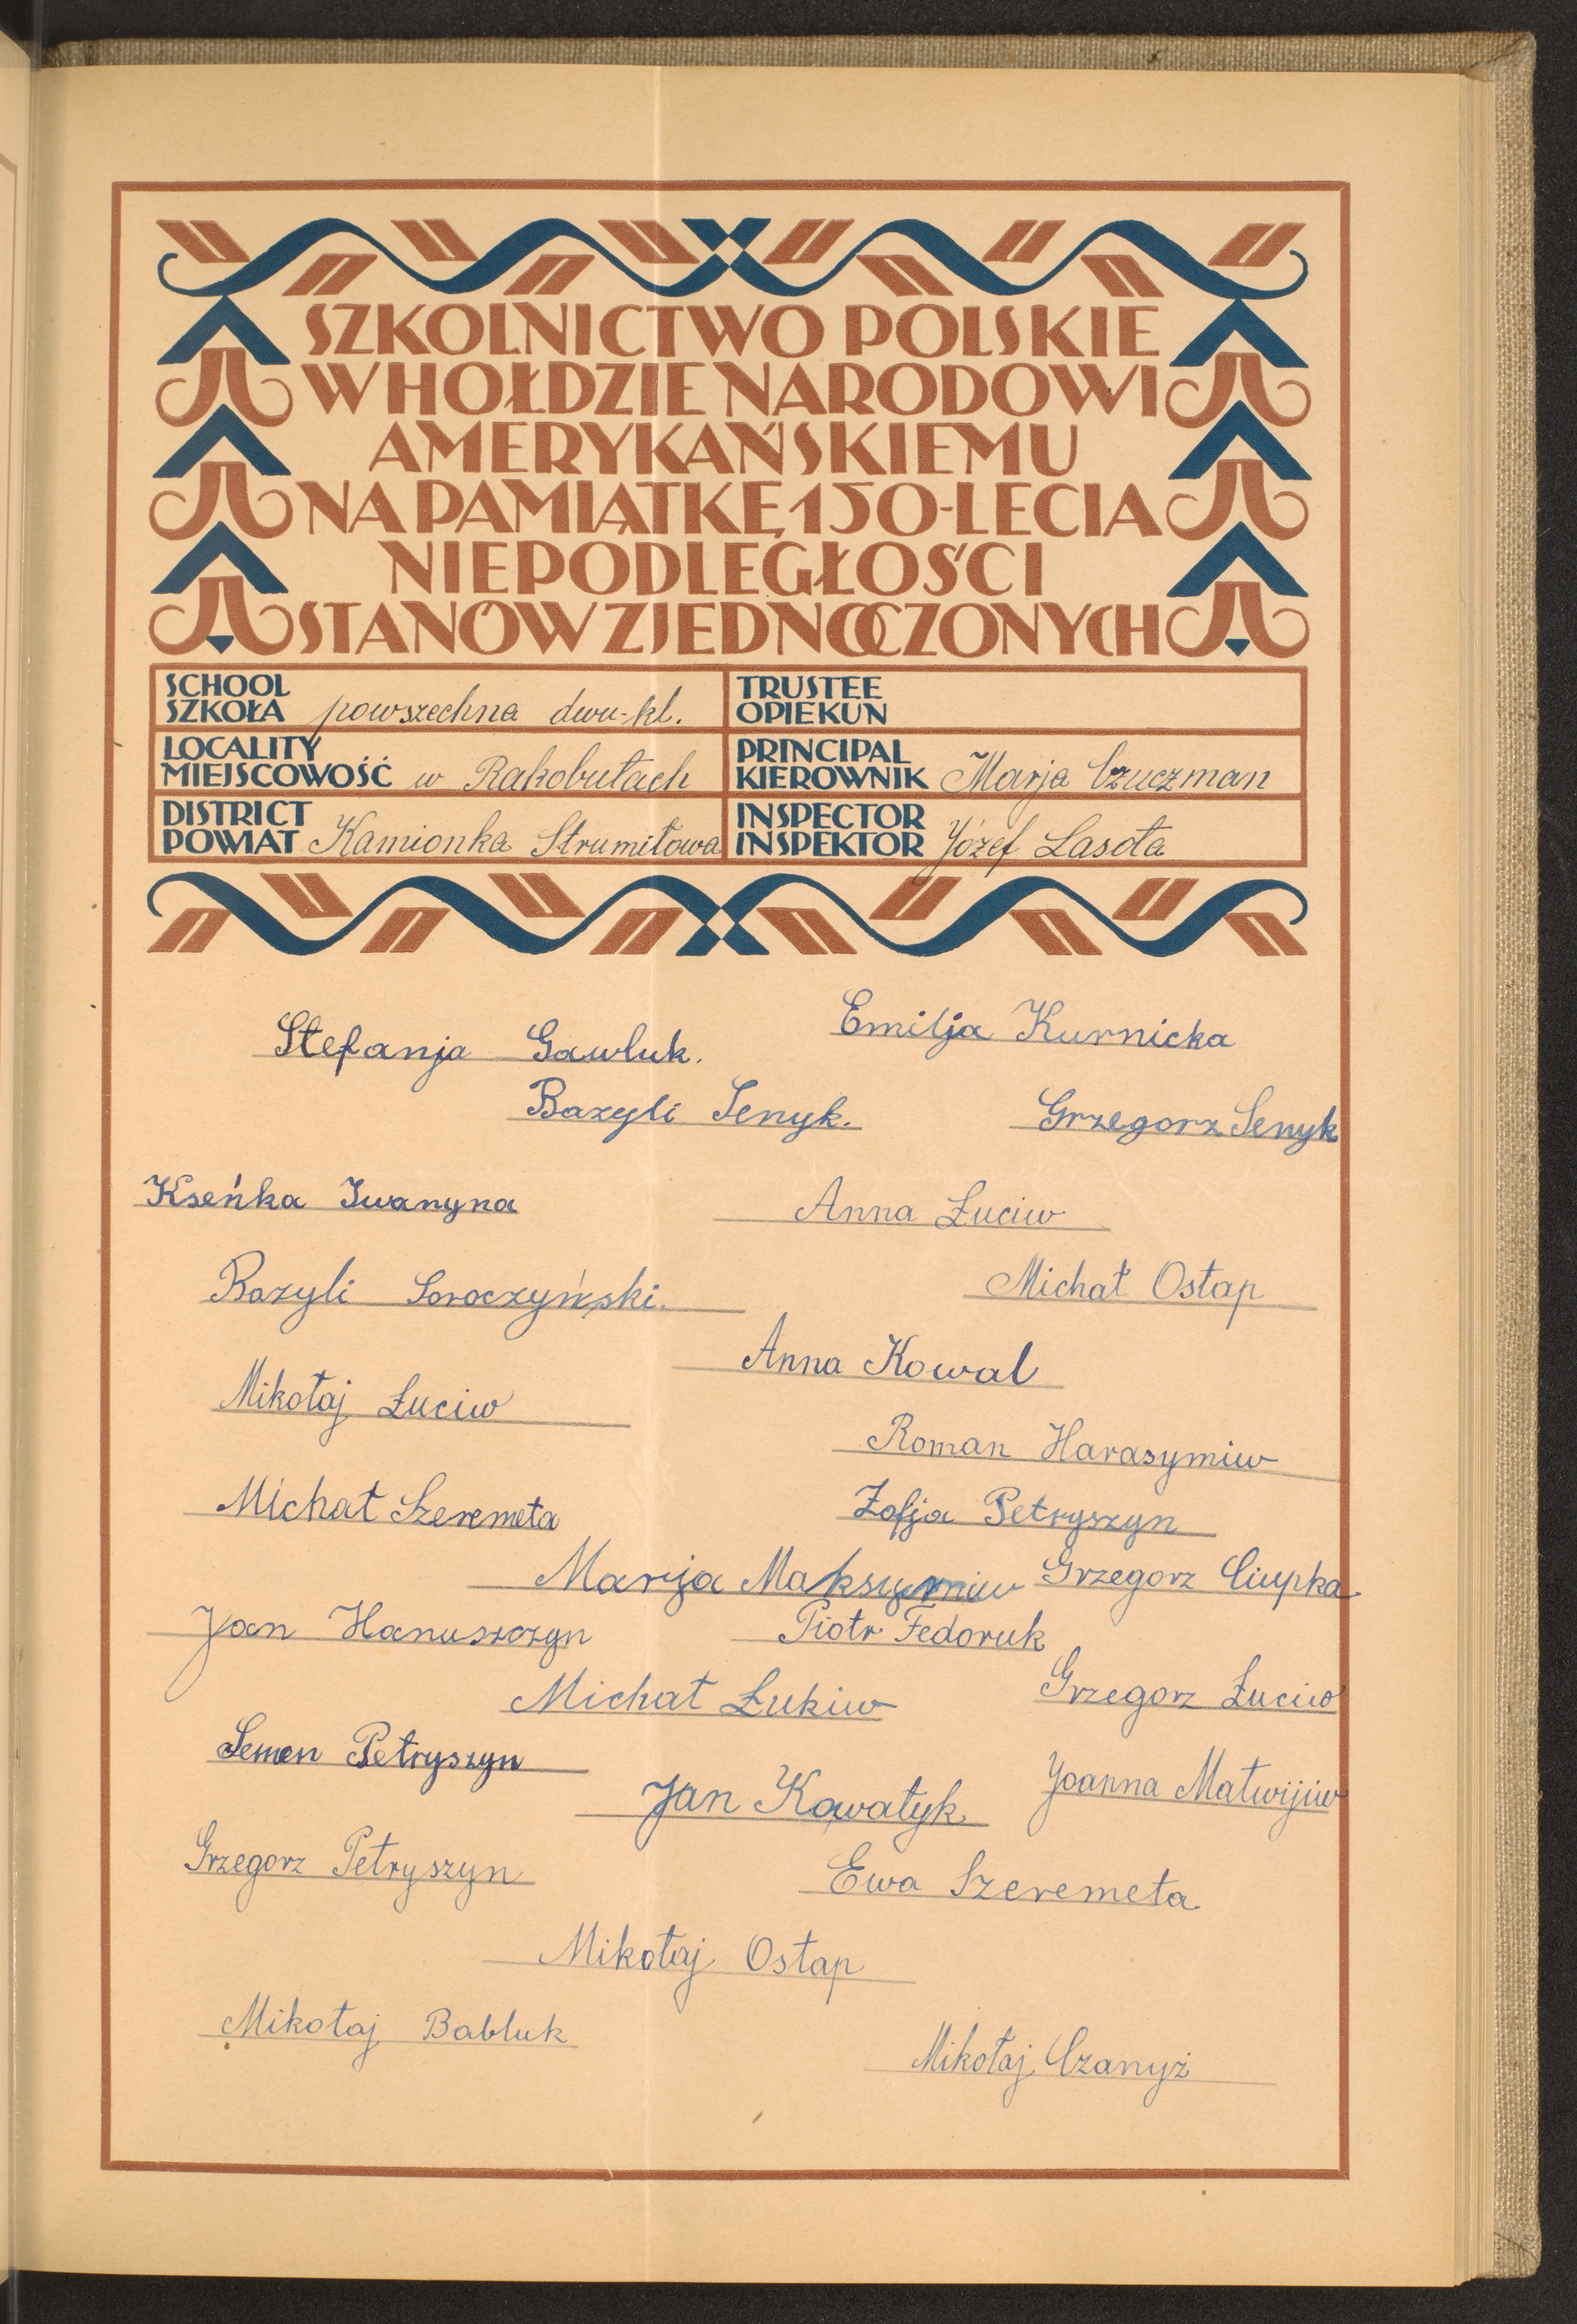 SZKOLNICTWO POLSKIE
W HOŁDZIE NARODOWI
AMERYKAŃSKIEMU
NA PAMIĄTKĘ 150-LECIA
NIEPODLEGŁOŚCI
STANÓW ZJEDNOCZONYCH
SCHOOL
SZKOŁA powszechna dwu-kl.
TRUSTEE
OPIEKUN
LOCALITY
MIEJSCOWOŚĆ w Rakobutach
PRINCIPAL
KIEROWNIK Marja Czuczman
DISTRICT
POWIAT Kamionka Strumiłowa
INSPECTOR
INSPEKTOR Józef Lasota
Stefanja Gawluk.
Emilja Kurnicka
Bazyli Senyk.
Grzegorz Senyk
Kseńka Iwanyna
Anna Łuciw
Bazyli Soroczyński.
Michał Ostap
Anna Kowal
Mikołaj Łuciw
Roman Harasymiw
Michał Szeremeta
Zofja Petryszyn
Marija Maksymiw
Grzegorz Ciupka
Jan Hanuszczyn
Piotr Fedoruk
Michał Łukiw
Grzegorz Łuciw
Semen Petryszyn
Jan Kowałyk
Joanna Matwijiw
Grzegorz Petryszyn
Ewa Szeremeta
Mikołaj Ostap
Mikołaj Babluk
Mikołaj Czanyż